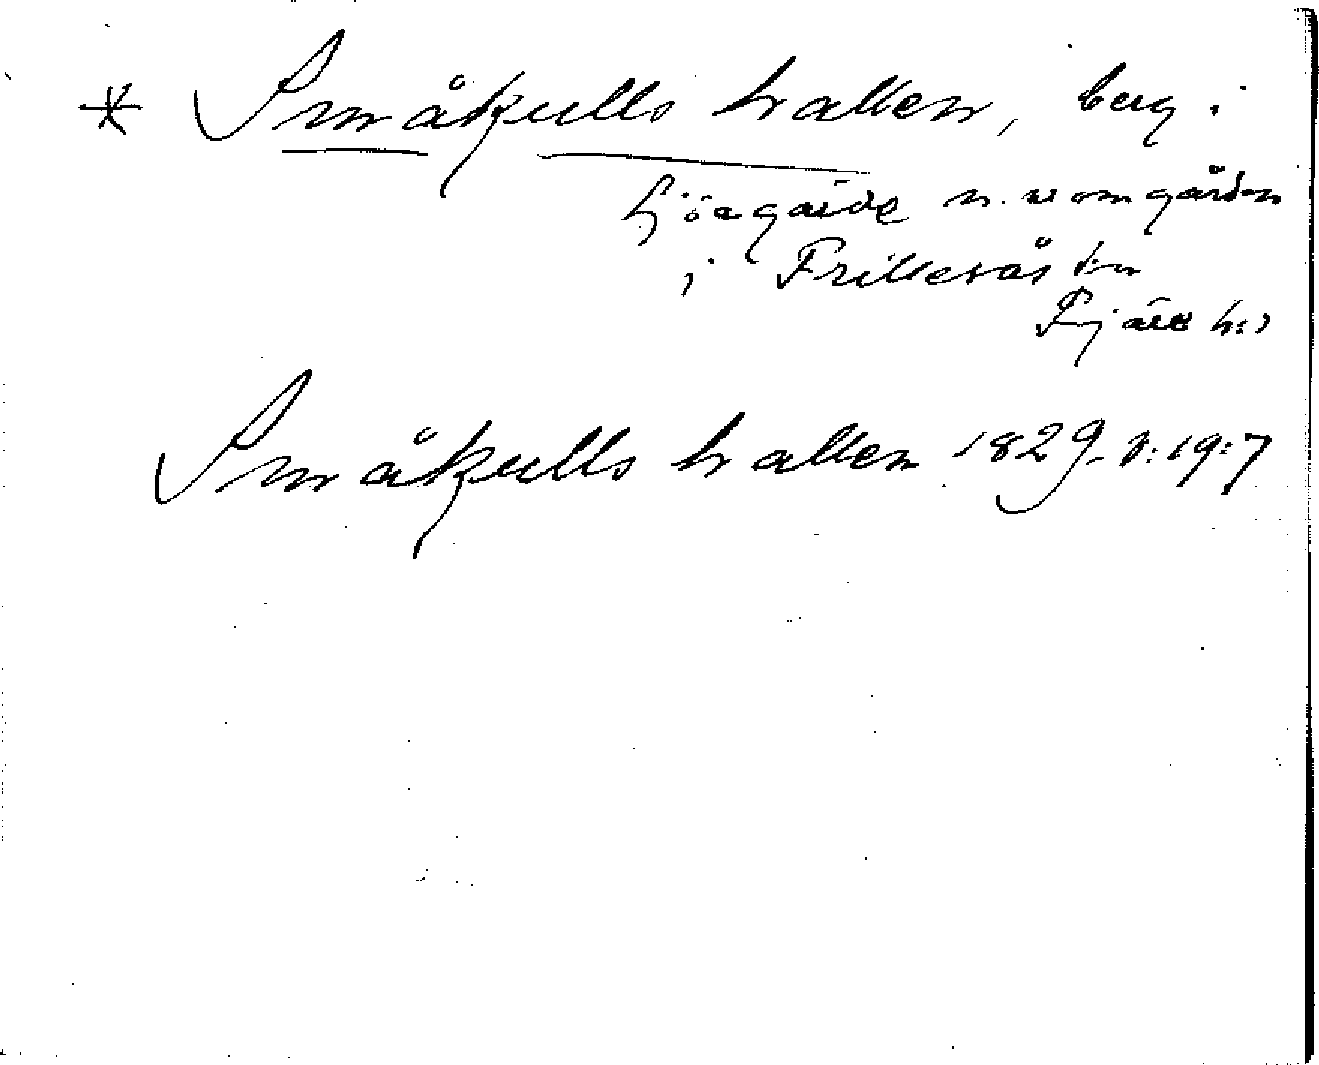 * Småkulls hallen, berg i
Höagärde n. v om gården
i Frillesås sn
Fjäre hd
Småkulls hallen 1829 J:19:7